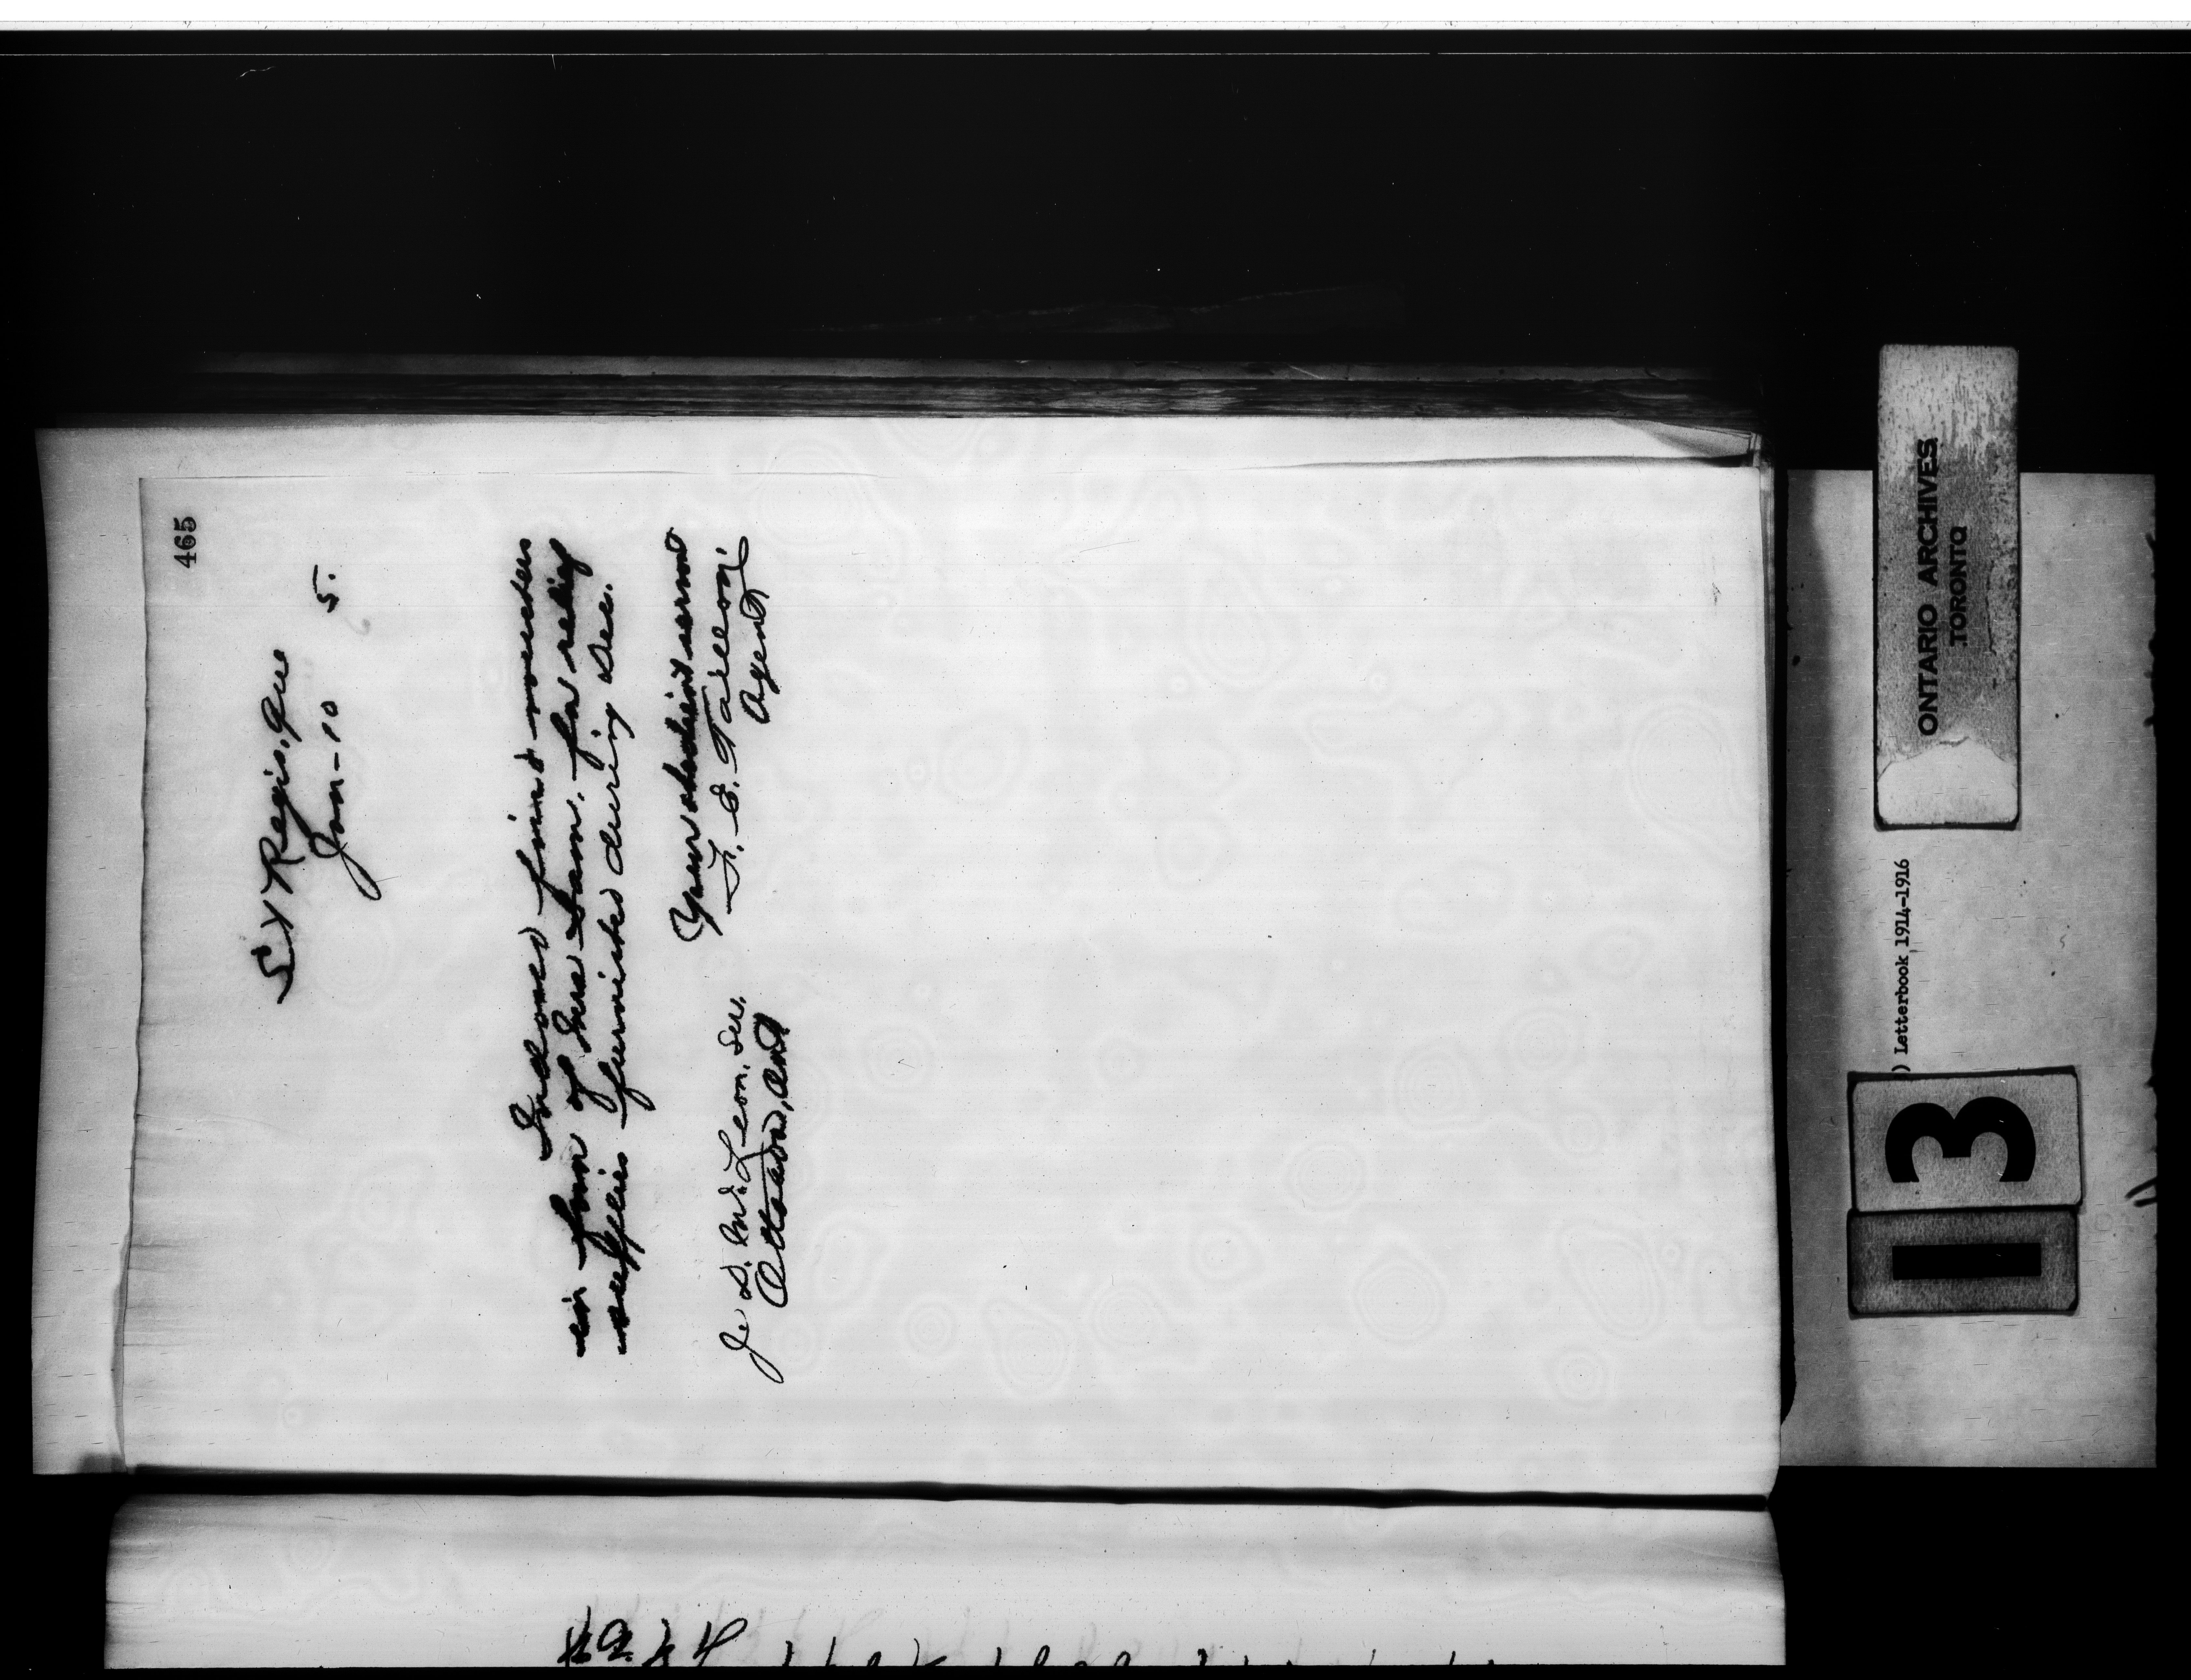 465
St Regis, Que
Jan-10 5.
Inclosed find vouchers
in favor of Ira Sam. for relief
supplies furnished during Dec.
Your obedient servant
F. E. Taillon
Agent
J. D. McLean, Sec.
Ottawa, Ont
ONTARIO ARCHIVES
TORONTO
) Letterbook 1914-1916
13